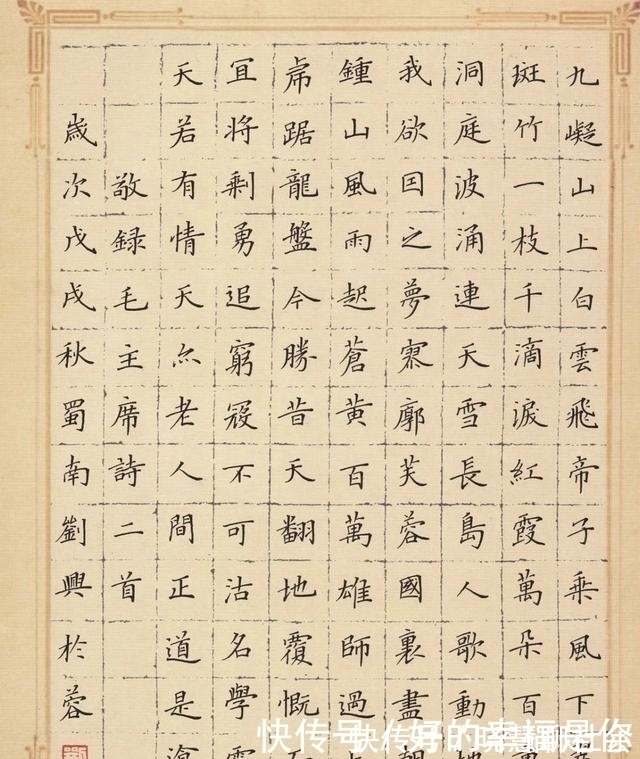 九嶷山上白雲飛帝子乘風下
斑竹一枝千滴淚紅霞萬朵百
洞庭波涌連天雪長島人歌動
我欲囙之夢寥廓芙蓉國裏盡
鍾山風雨起蒼黃百萬雄師過
虎踞龍盤今勝昔天翻地覆慨
宜將剩勇追窮寇不可沽名學
天若有情天亦老人間正道是滄
敬録毛主席詩二首
歲次戊戌秋蜀南劉興於蓉
快传号/好的幸福是你